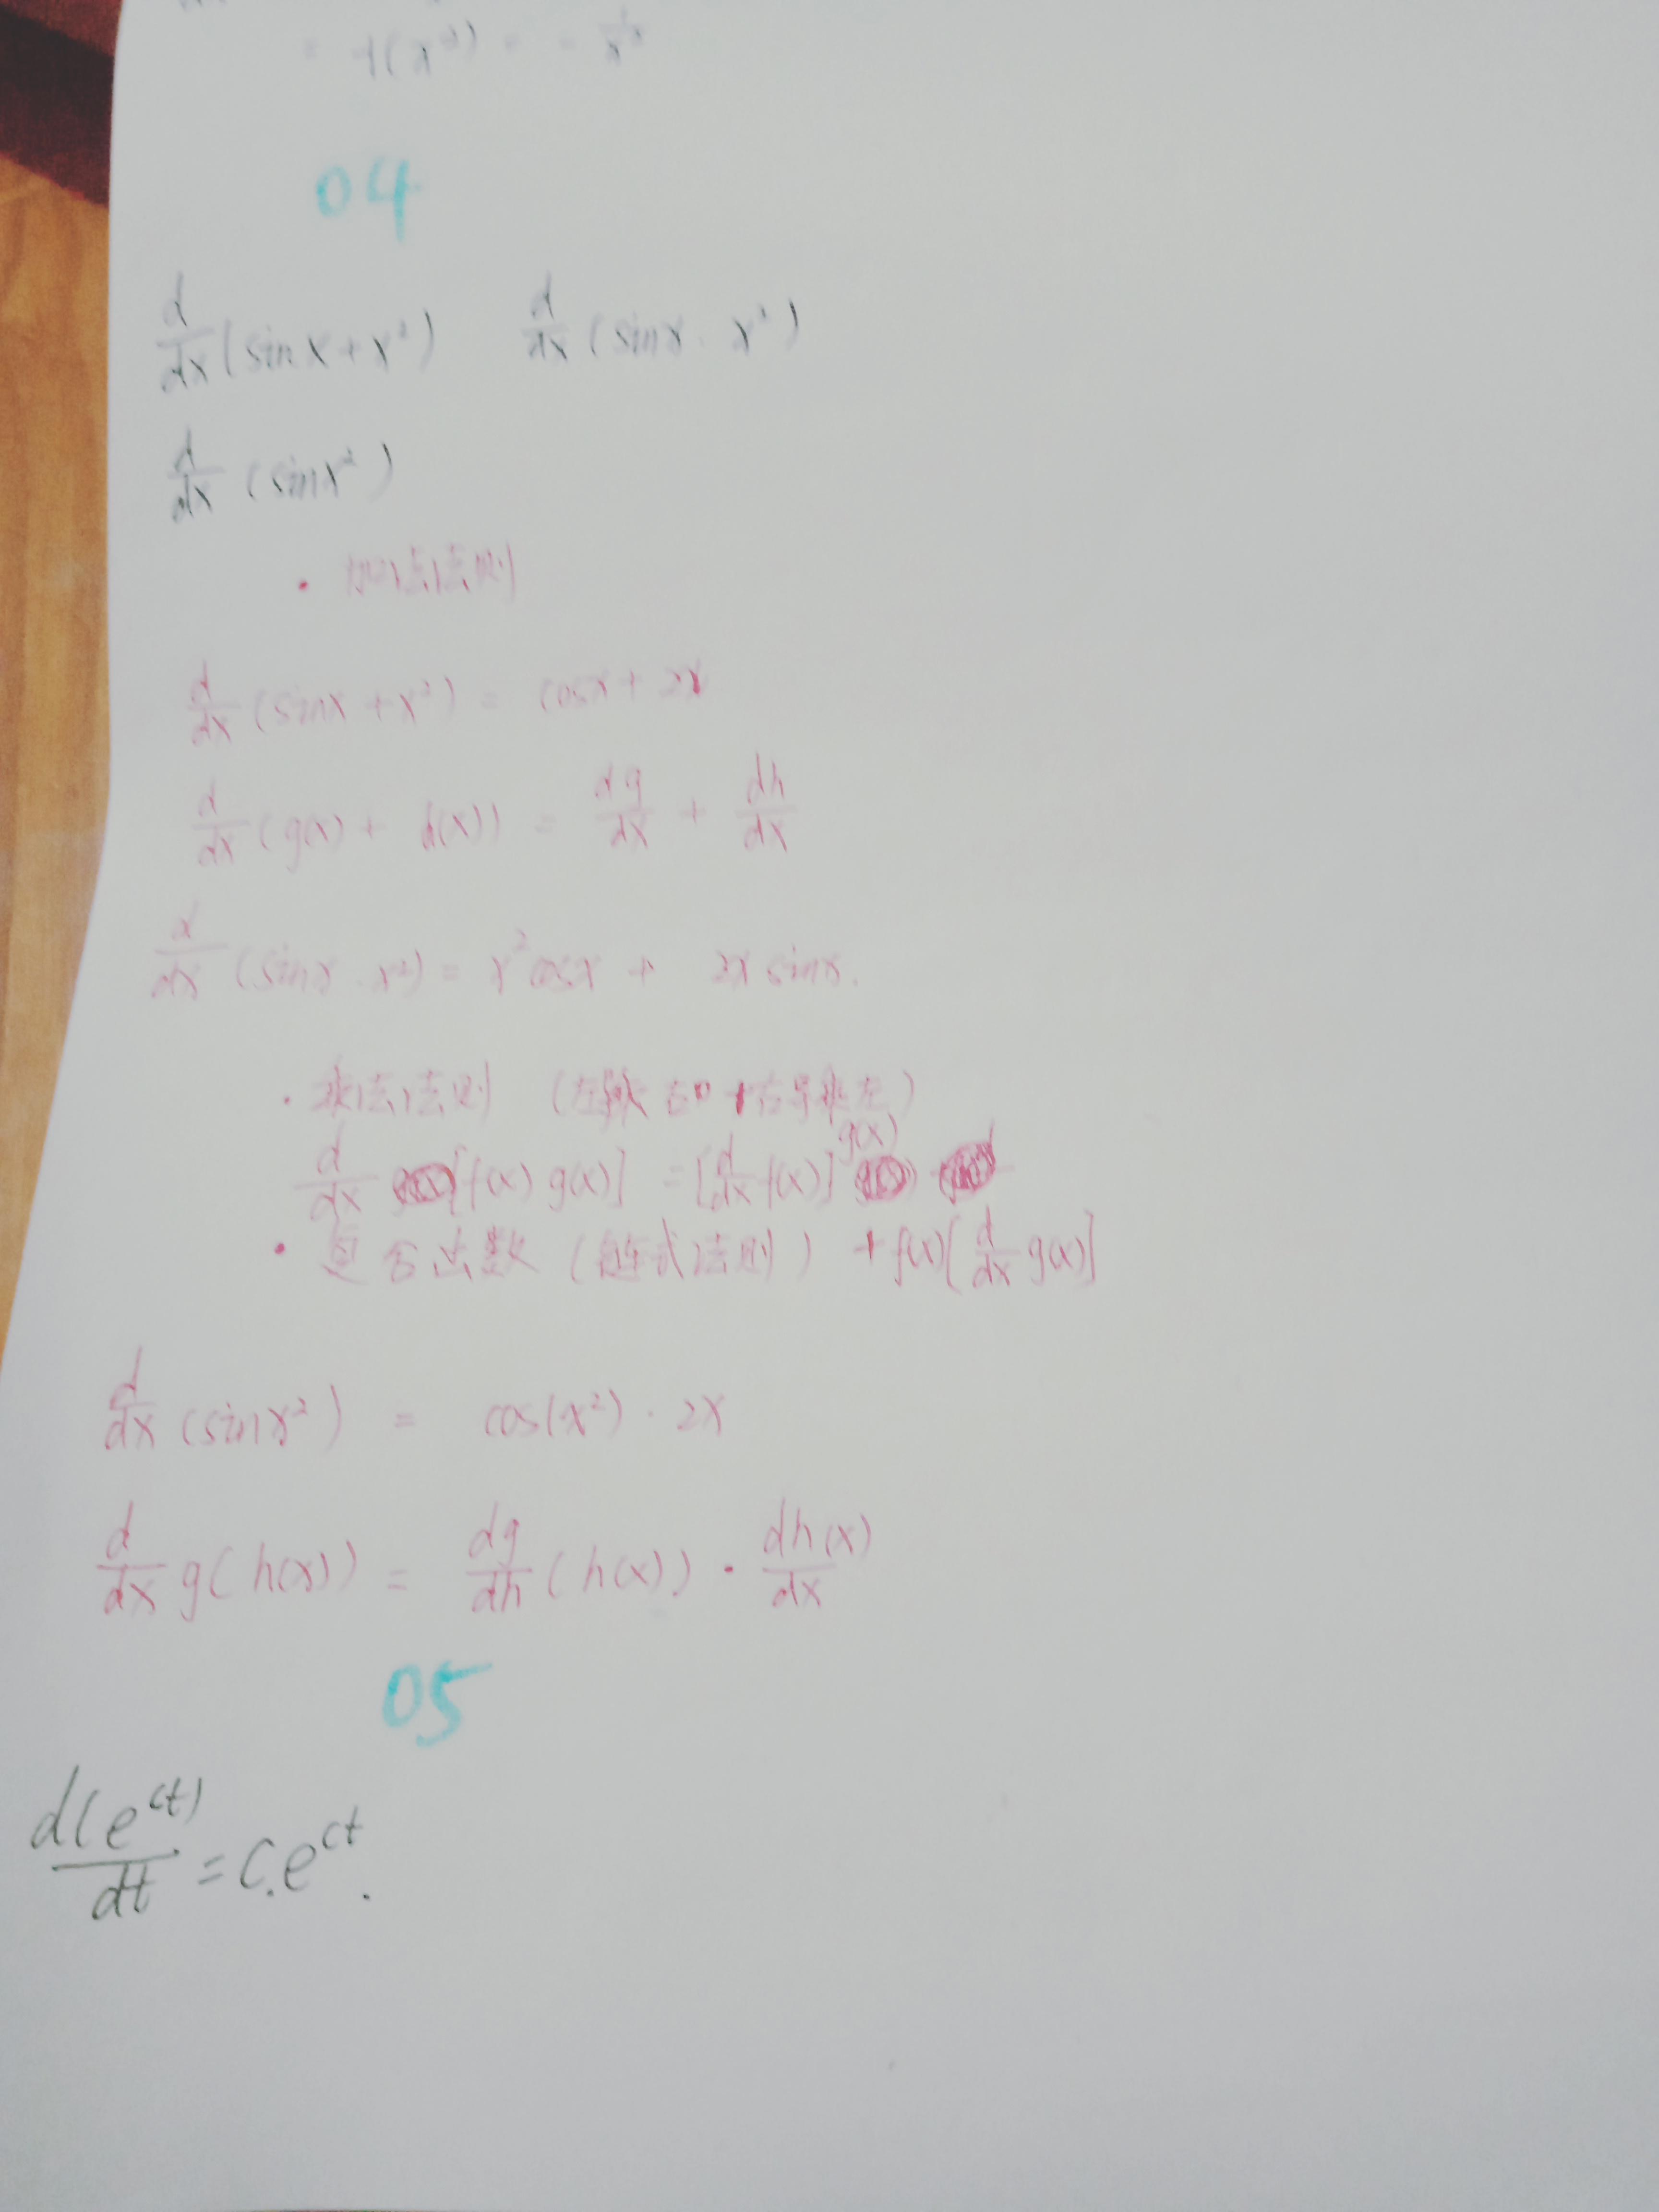 = -1(x⁻²) = - 1/x²
04
d/dx (sinx+x²) d/dx (sinx · x²)
d/dx (sinx²)
· 加法法则
d/dx (sinx + x²) = cosx + 2x
d/dx (g(x) + d(x)) = dg/dx + dh/dx
d/dx (sinx · x²) = x² cosx + 2x sinx.
· 乘法法则 (左 右 + 右导乘左)
d/dx [f(x) g(x)] = [d/dx f(x)] g(x)
· 复合函数 (链式法则) + f(x)[d/dx g(x)]
d/dx (sinx²) = cos(x²) · 2x
d/dx g(h(x)) = dg/dh (h(x)) · dh(x)/dx
05
d(e^ct)/dt = c.e^ct.